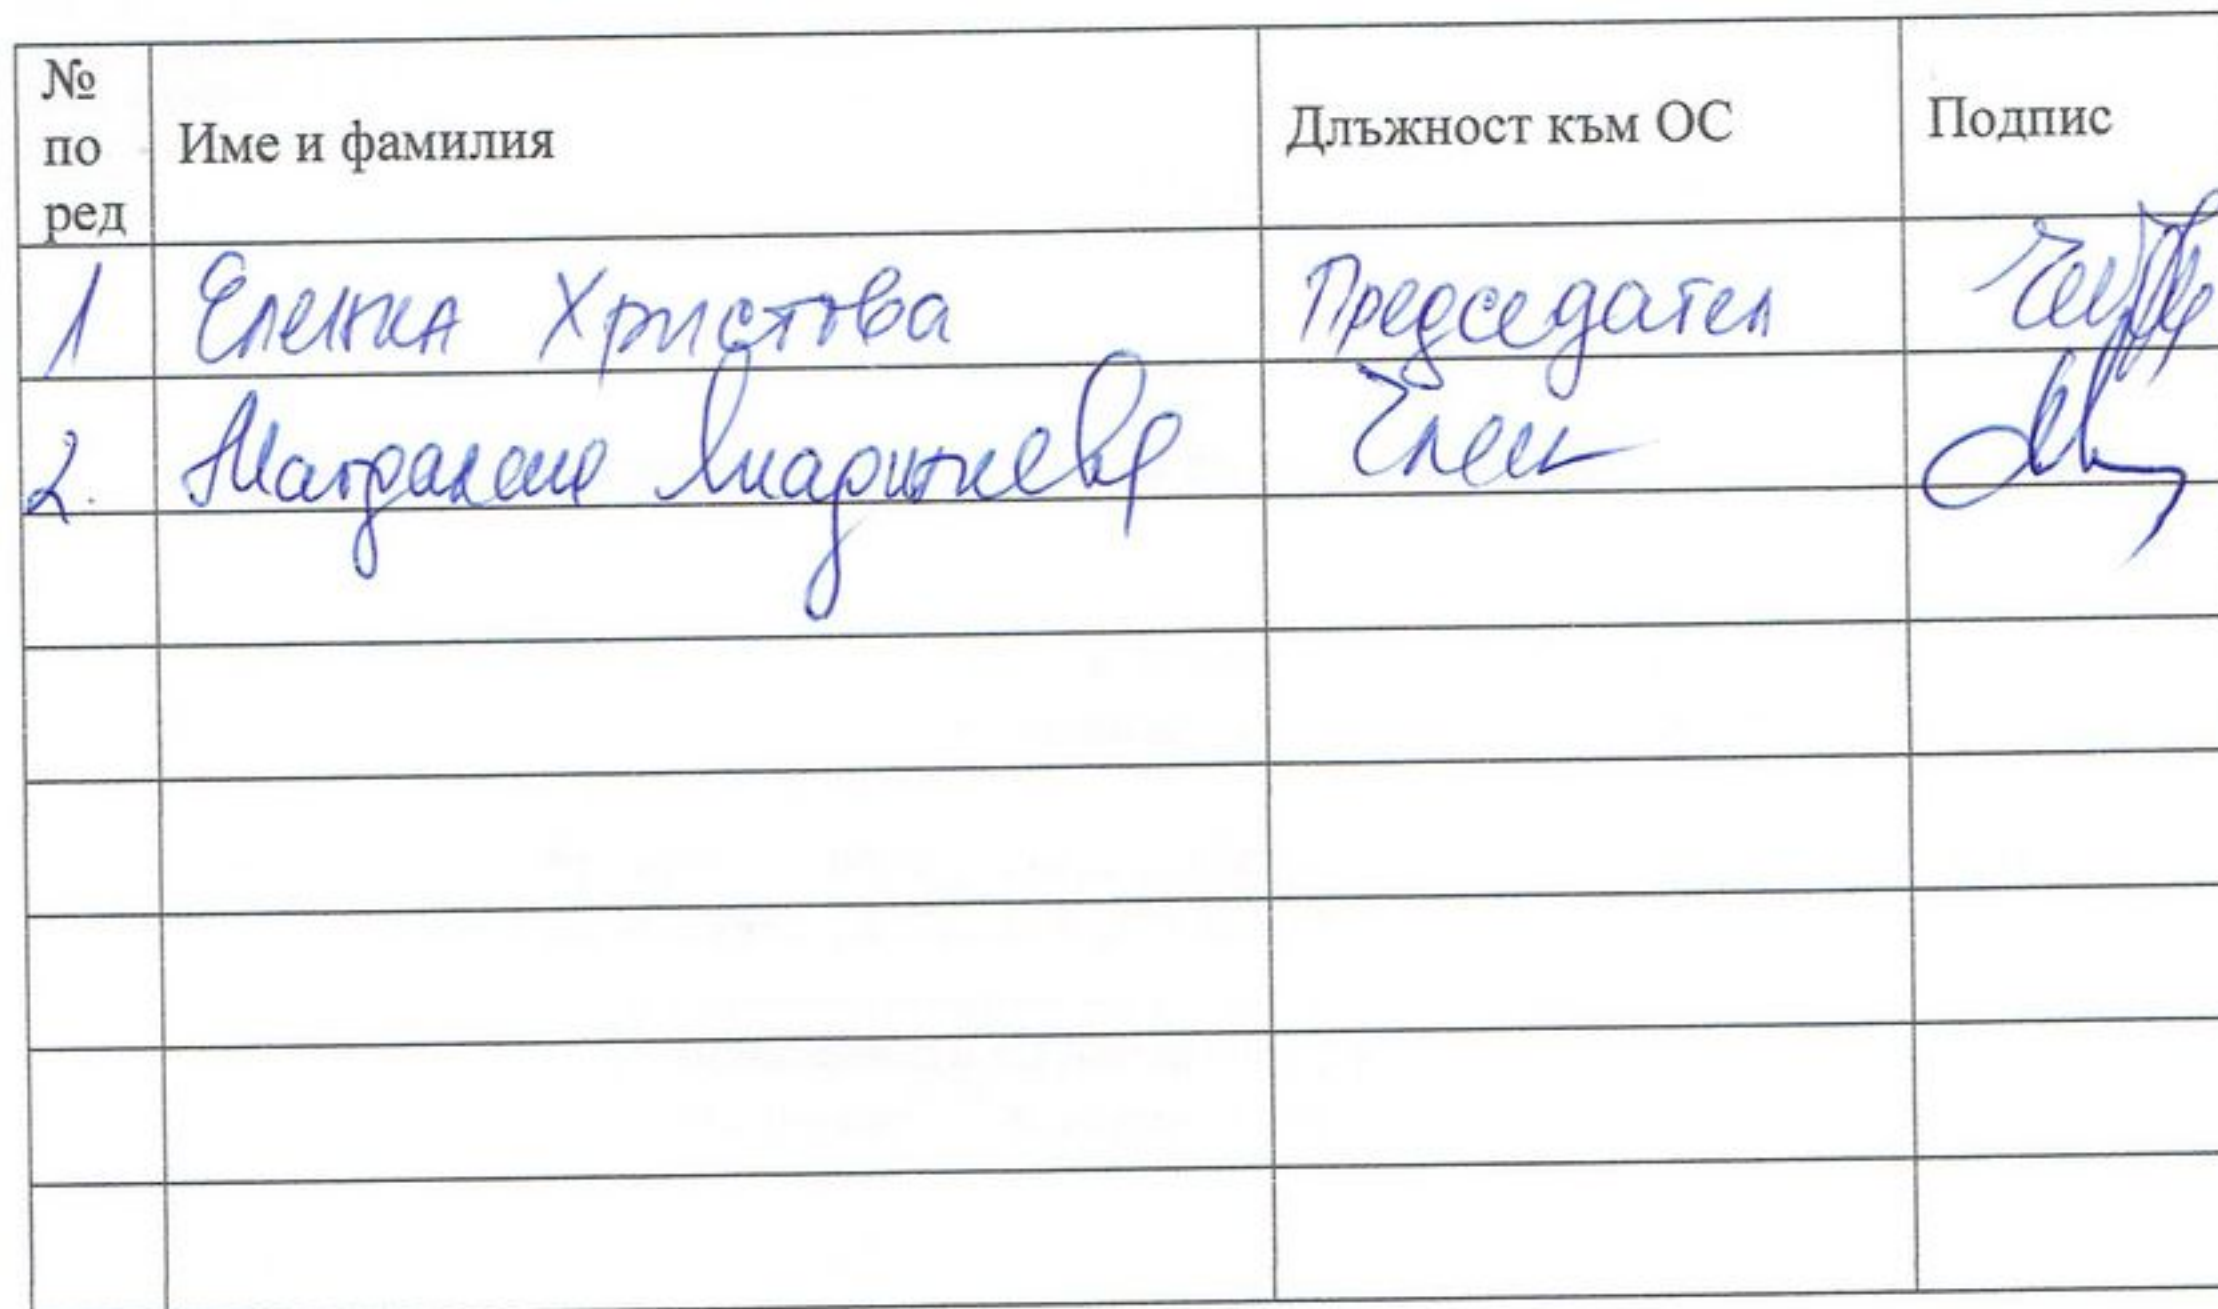 № по ред Име и фамилия Длъжност към ОС Подпис
1 Еленка Христова Председател
2. Магдалена Член